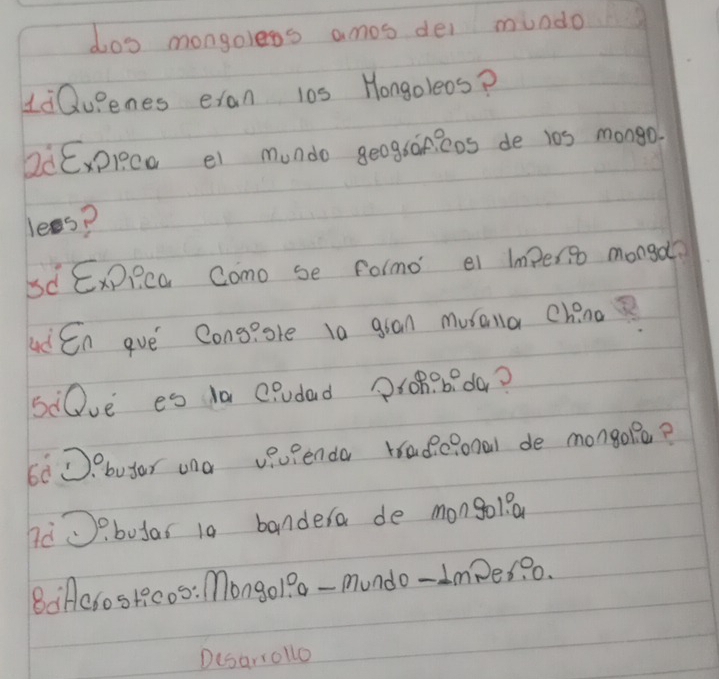 Los mongoleos amos del mundo
1¿Quienes eran los Mongoleos?
2¿Explica el mundo geográficos de los mongo-
leos?
3¿Explica Cómo se formó el Imperio mongol?
4¿En qué Consiste la gran muralla China?
5¿Qué es la Ciudad Prohibida?
6¿Dibujar una vivienda tradicional de mongolia?
7¿Dibujar la bandera de mongolia
8¿Acrosticos: Mongolia - mundo - Imperio.
Desarrollo